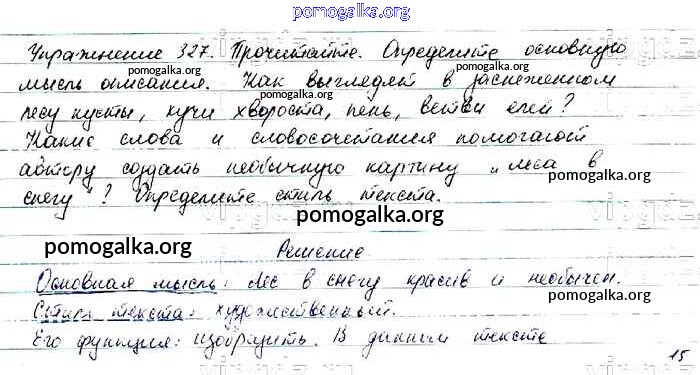 pomogalka.org
Упражнение 327. Прочитайте. Определите основную
мысль описания. Как выглядят в заснеженном
pomogalka.org pomogalka.org
лесу кусты, кучи хвороста, пень, ветви елей?
Какие слова и словосочетания помогают
автору создать необычную картину "леса в
pomogalka.org
снегу"? Определите стиль текста.
pomogalka.org
pomogalka.org
Решение
Основная мысль: Лес в снегу красив и необычен.
pomogalka.org
Стиль текста: художественный.
Его функция: изобразить. В данном тексте
pomogalka.org
15